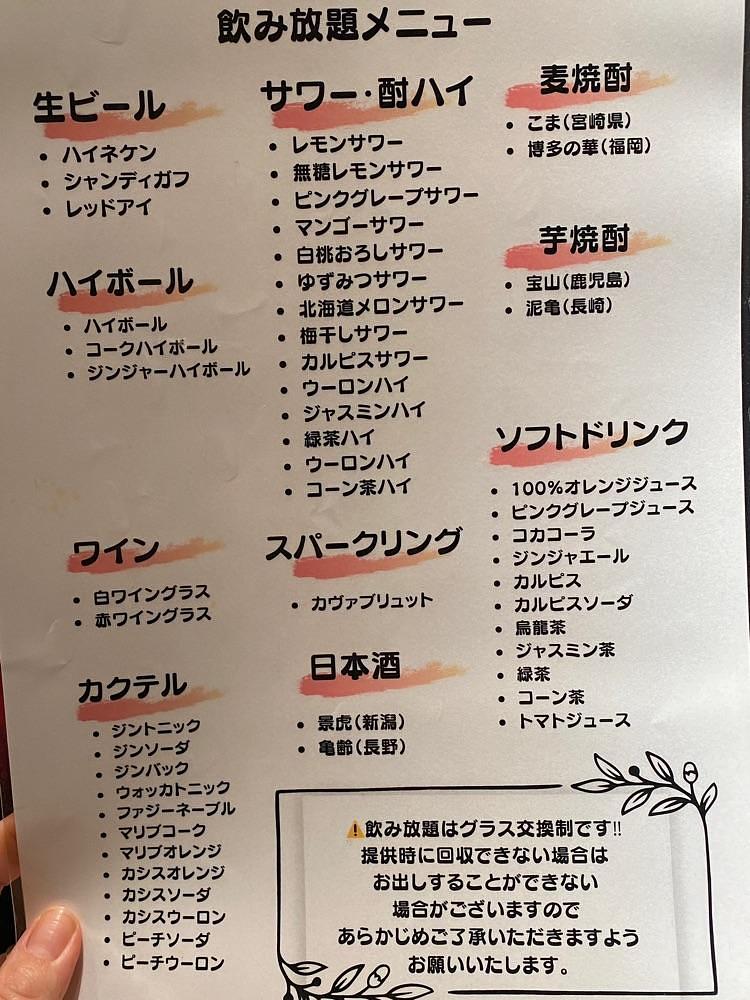 飲み放題メニュー
生ビール
• ハイネケン
• シャンディガフ
• レッドアイ
ハイボール
• ハイボール
• コークハイボール
• ジンジャーハイボール
サワー・酎ハイ
• レモンサワー
• 無糖レモンサワー
• ピンクグレープサワー
• マンゴーサワー
• 白桃おろしサワー
• ゆずみつサワー
• 北海道メロンサワー
• 梅干しサワー
• カルピスサワー
• ウーロンハイ
• ジャスミンハイ
• 緑茶ハイ
• ウーロンハイ
• コーン茶ハイ
麦焼酎
• こま(宮崎県)
• 博多の華(福岡)
芋焼酎
• 宝山(鹿児島)
• 泥亀(長崎)
ワイン
• 白ワイングラス
• 赤ワイングラス
カクテル
• ジントニック
• ジンソーダ
• ジンバック
• ウォッカトニック
• ファジーネーブル
• マリブコーク
• マリブオレンジ
• カシスオレンジ
• カシスソーダ
• カシスウーロン
• ピーチソーダ
• ピーチウーロン
スパークリング
• カヴァブリュット
日本酒
• 景虎(新潟)
• 亀齢(長野)
ソフトドリンク
• 100%オレンジジュース
• ピンクグレープジュース
• コカコーラ
• ジンジャエール
• カルピス
• カルピスソーダ
• 烏龍茶
• ジャスミン茶
• 緑茶
• コーン茶
• トマトジュース
⚠️飲み放題はグラス交換制です‼
提供時に回収できない場合は
お出しすることができない
場合がございますので
あらかじめご了承いただきますよう
お願いいたします。